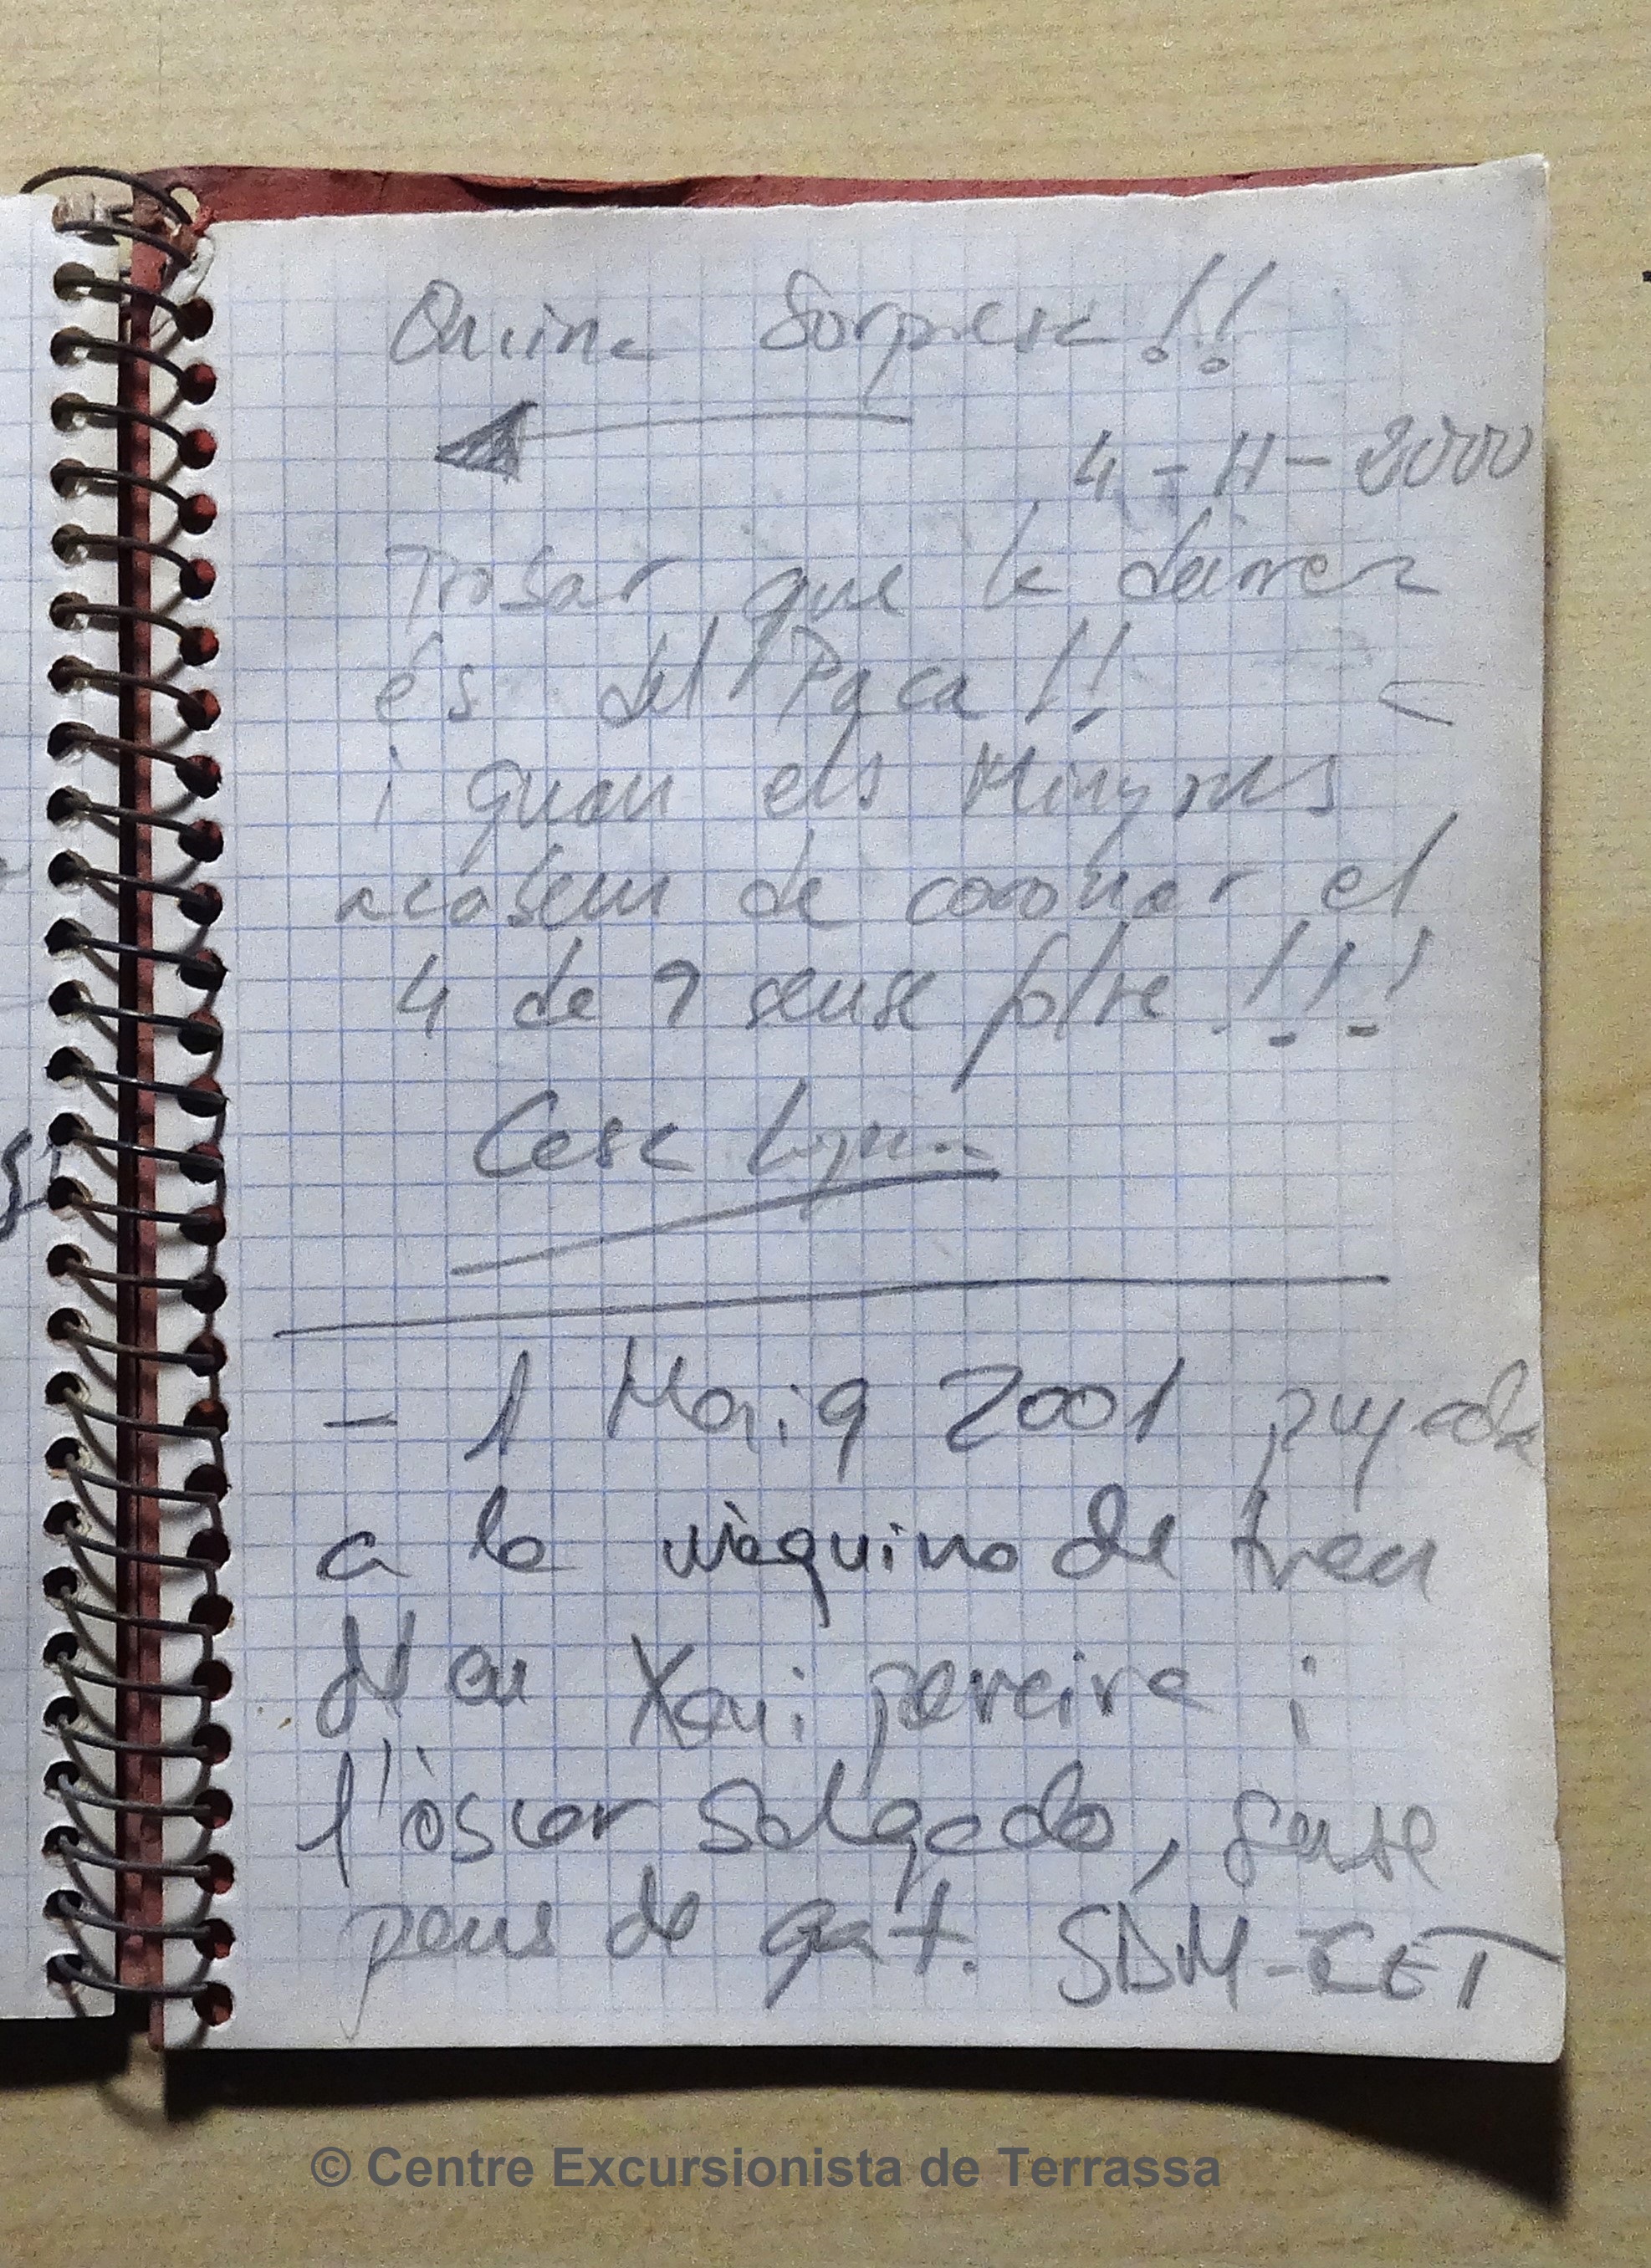 Quina Sorpresa!!
4-11-2000
Trobar que la darrera
és del Paca!!
i quan els Minyons
acabem de coronar el
4 de 9 sense folre!!!
Cesc
- 1 Maig 2001 pujada
a la màquina de tren
d'en Xavi pereira i
l'òscar Salgado, sense
peus de gat. SDM-CET
© Centre Excursionista de Terrassa